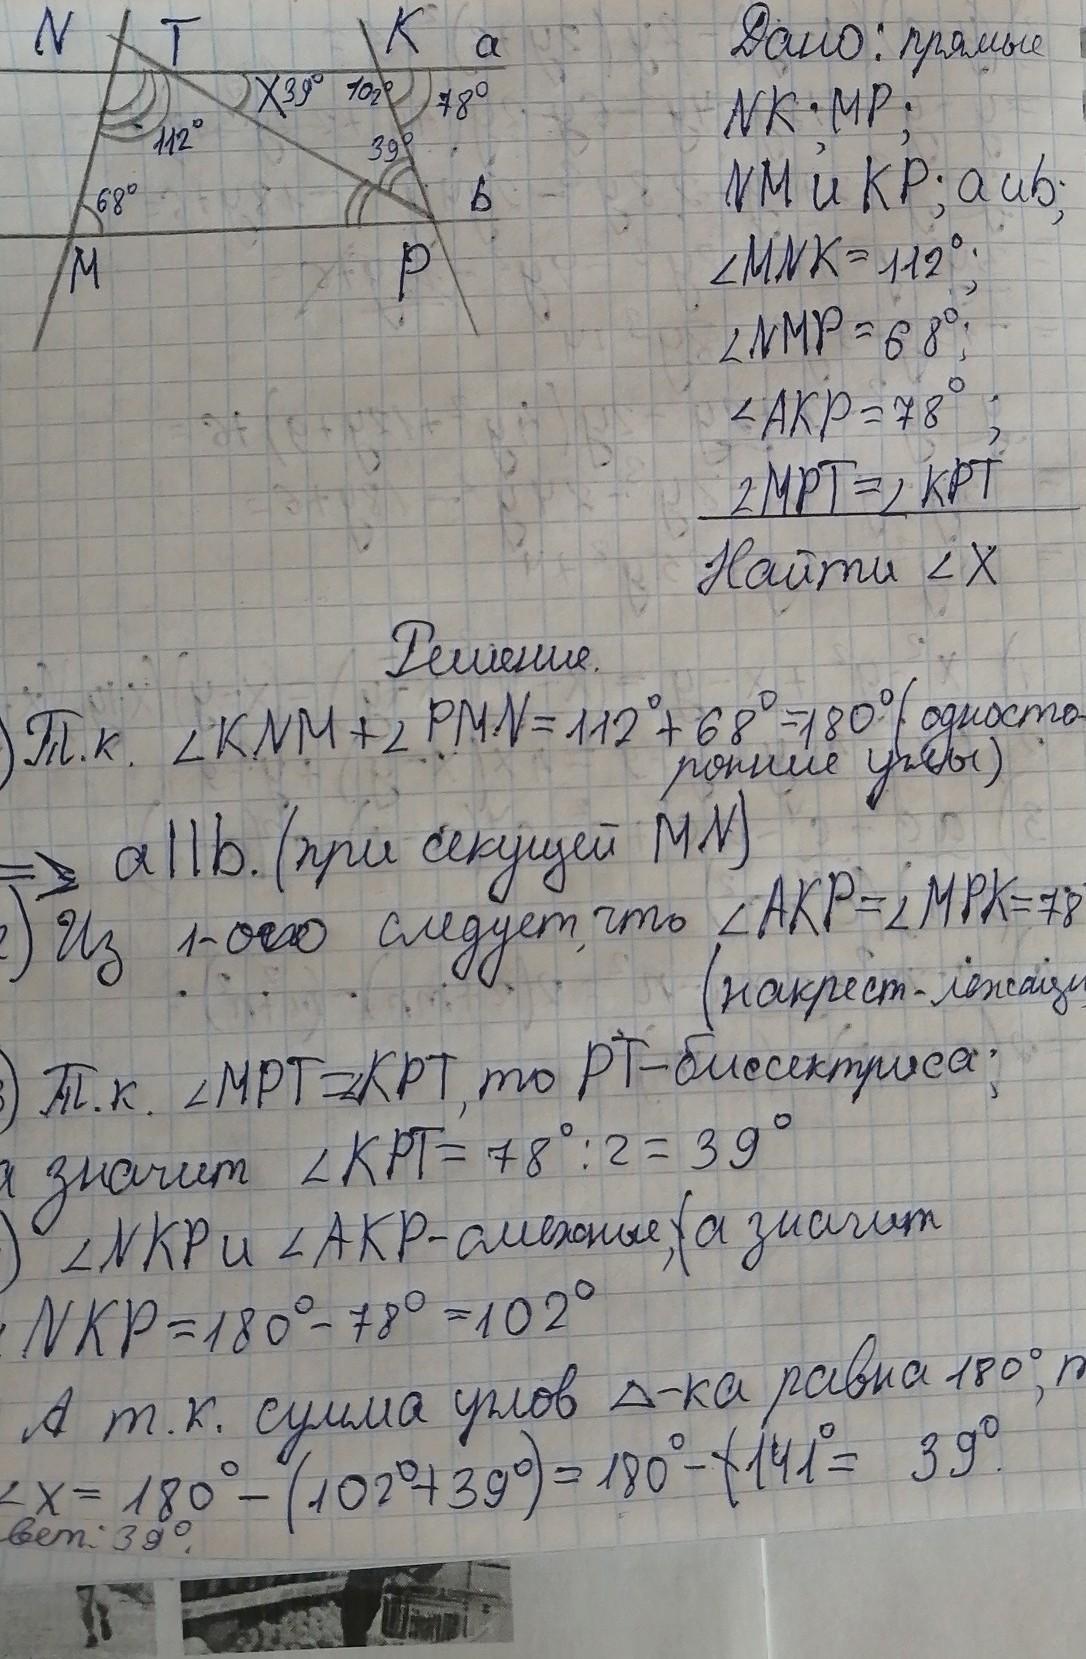 N T K a
X 39° 102° 78°
112°
39°
68° b
M P
Дано: прямые
NK; MP;
NM и KP; a и b;
∠MNK = 112°;
∠NMP = 68°;
∠AKP = 78°;
∠MPT = ∠KPT
Найти ∠X
Решение.
) Т.к. ∠KNM + ∠PMN = 112° + 68° = 180° (односто-
ронние углы)
=> a||b. (при секущей MN)
) Из 1-ого следует, что ∠AKP = ∠MPK = 78°
(накрест-лежащи
) Т.к. ∠MPT = ∠KPT, то PT-биссектриса;
а значит ∠KPT = 78° : 2 = 39°
) ∠NKP и ∠AKP-смежные, (а значит
NKP = 180° - 78° = 102°
А т.к. сумма углов △-ка равна 180°, т
∠X = 180° - (102° + 39°) = 180° - (141° = 39°.
вет: 39°.